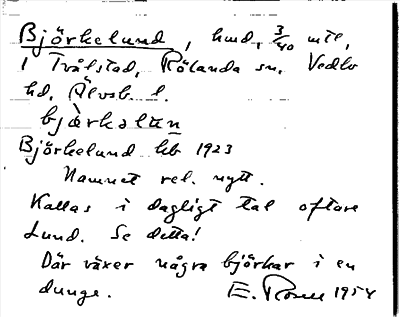 Björkelund, hmd, 3/40 mtl,
i Tvålstad, Rölanda sn, Vedbo
hd, Älvsb. l.
bjærkalùn
Björkelund hb 1923
Namnet rel. nytt.
Kallas i dagligt tal oftare
Lund. Se detta!
Där växer några björkar i en
dunge. E. Rosell 1954